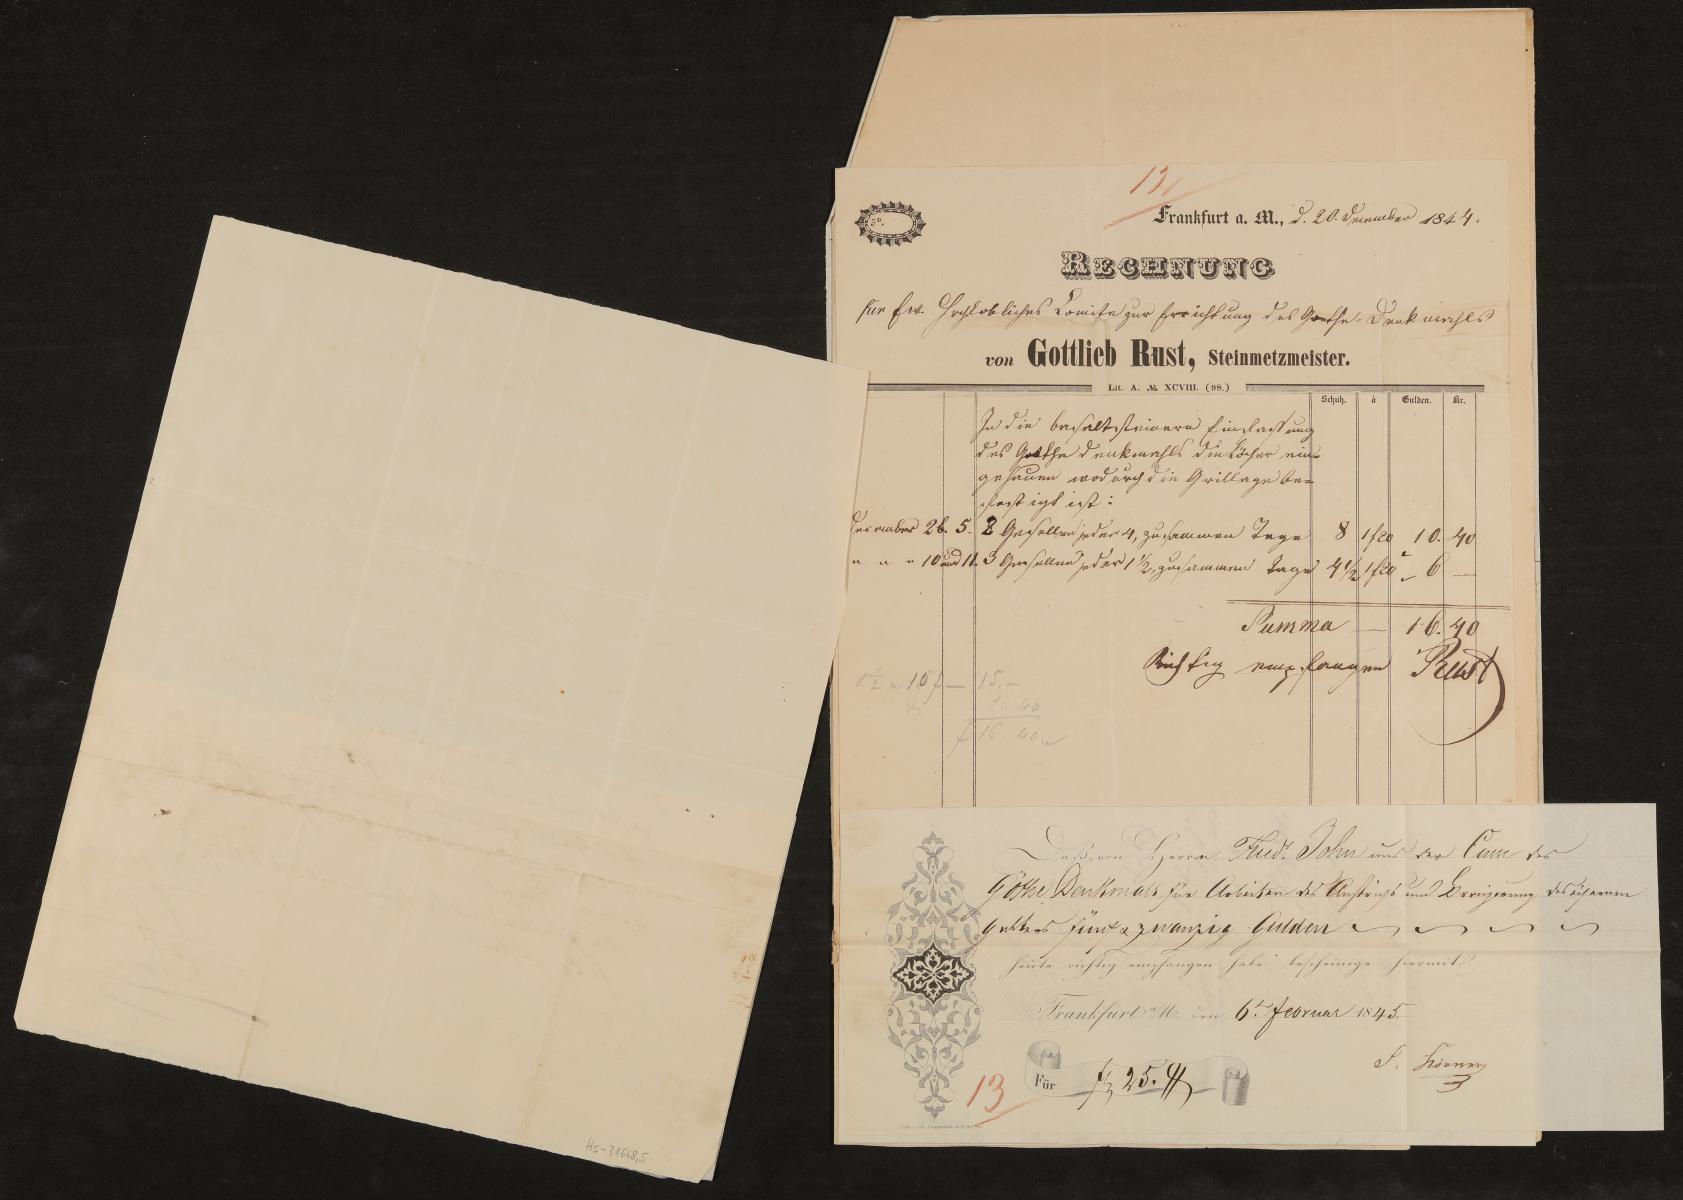 12
Frankfurt a. M., d. 20. December 1844.
RECHNUNG
für Ew. Hochlöbliches Comite zur Errichtung des Goethe-Denkmahls
von Gottlieb Rust, Steinmetzmeister.
Lit. A. № XCVIII. (98.)
Schuh. à Gulden. Kr.
In die basaltsteinern Einfassung
des Goethe denkmahls die Löcher ein-
gehauen wodurch die Grillage be-
festigt ist:
December 2 b. 5. 2 Gesellen jeder 4, zusammen Tage 8 1f20 10. 40
" " " 10 und 11. 3 Gesellen jeder 1 1/2, zusammen Tage 4 1/2 1f20 6 —
Summa — 16. 40
Richtig empfangen Rust
1 1/2 a 10 f — 15. —
1. 40
f 16. 40
Daß von Herrn Fried. John aus der Casse des
Göthe Denkmals für Arbeiten des Anstrichs und Bronzirung des eisernen
Gitters fünf & zwanzig Gulden
heute richtig empfangen habe bescheinige hiermit.
Frankfurt a/M. den 6ten Februar 1845.
Für f 25.
13
Hs-31668,5